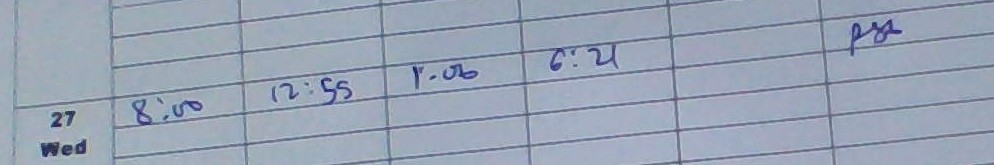 27 8:00 12:55 1-06 6:21
Wed